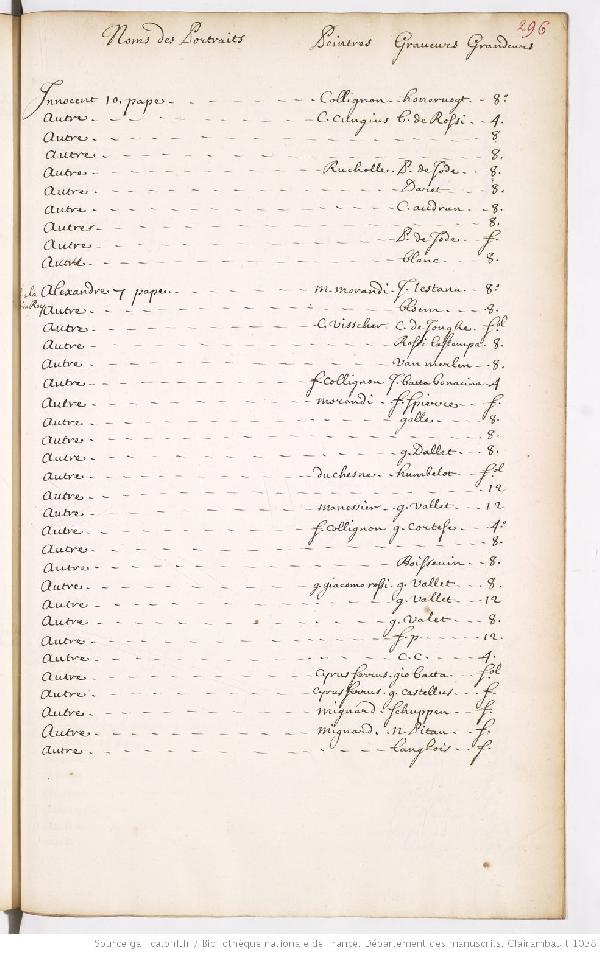 296
Noms des Portraits Peintres Graveurs Grandeurs
Innocent 10. pape - Collignon - honoruogt - 8°
Autre - C. Cungius G. de Rossi - 4.
Autre - 8
Autre - 8.
Autre - Rucholle - P. de Jode - 8.
Autre - Daret - 8.
Autre - C. audran - 8.
Autres - 8.
Autre - P. de Jode - f.
Autre - blanc - 8.
Alexandre 7 pape - M. morandi - J. testana - 8°
Autre - bloem - 8.
Autre - C. Visscher C. de Jonghe - fol
Autre - Rossi lastempa - 8.
Autre - Van merlen - 8.
Autre - f. Collignon J. batta bonacina - 4
Autre - morandi - f. Spierre - f.
Autre - galle - 8.
Autre - 8.
Autre - g. Vallet - 8.
Autre - duchesne - humbelot - fol
Autre - 12
Autre - manessier - g. vallet - 12
Autre - f. Collignon g. Cortese - 4°
Autre - 8.
Autre - Boissevin - 8.
Autre - g. giacomo rossi - g. Vallet - 8.
Autre - g. Vallet - 12
Autre - g. Valet - 8.
Autre - f. p. - 12.
Autre - C. C. - 4.
Autre - Cyrus ferrus - gio batta - fol
Autre - Cyrus ferrus - g. Castellus - f.
Autre - mignard - Schuppen - f.
Autre - mignard - N. Pitau - f.
Autre - Langlois - f.
Source gallica.bnf.fr / Bibliothèque nationale de France. Département des manuscrits. Clairambault 1038